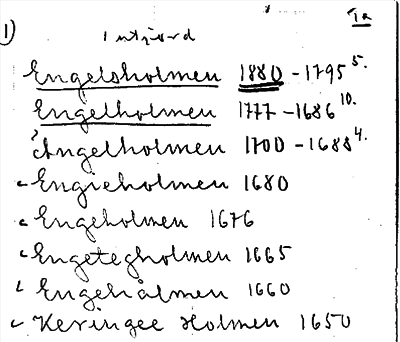 1a
1) Intjord
Engelsholmen 1880 - 1795 5.
Engelholmen 1777 - 1686 10.
? Angelholmen 1700 - 1688 4.
Engieholmen 1680
Engeholmen 1676
Engetegholmen 1665
Engehålmen 1660
Keringee Holmen 1650